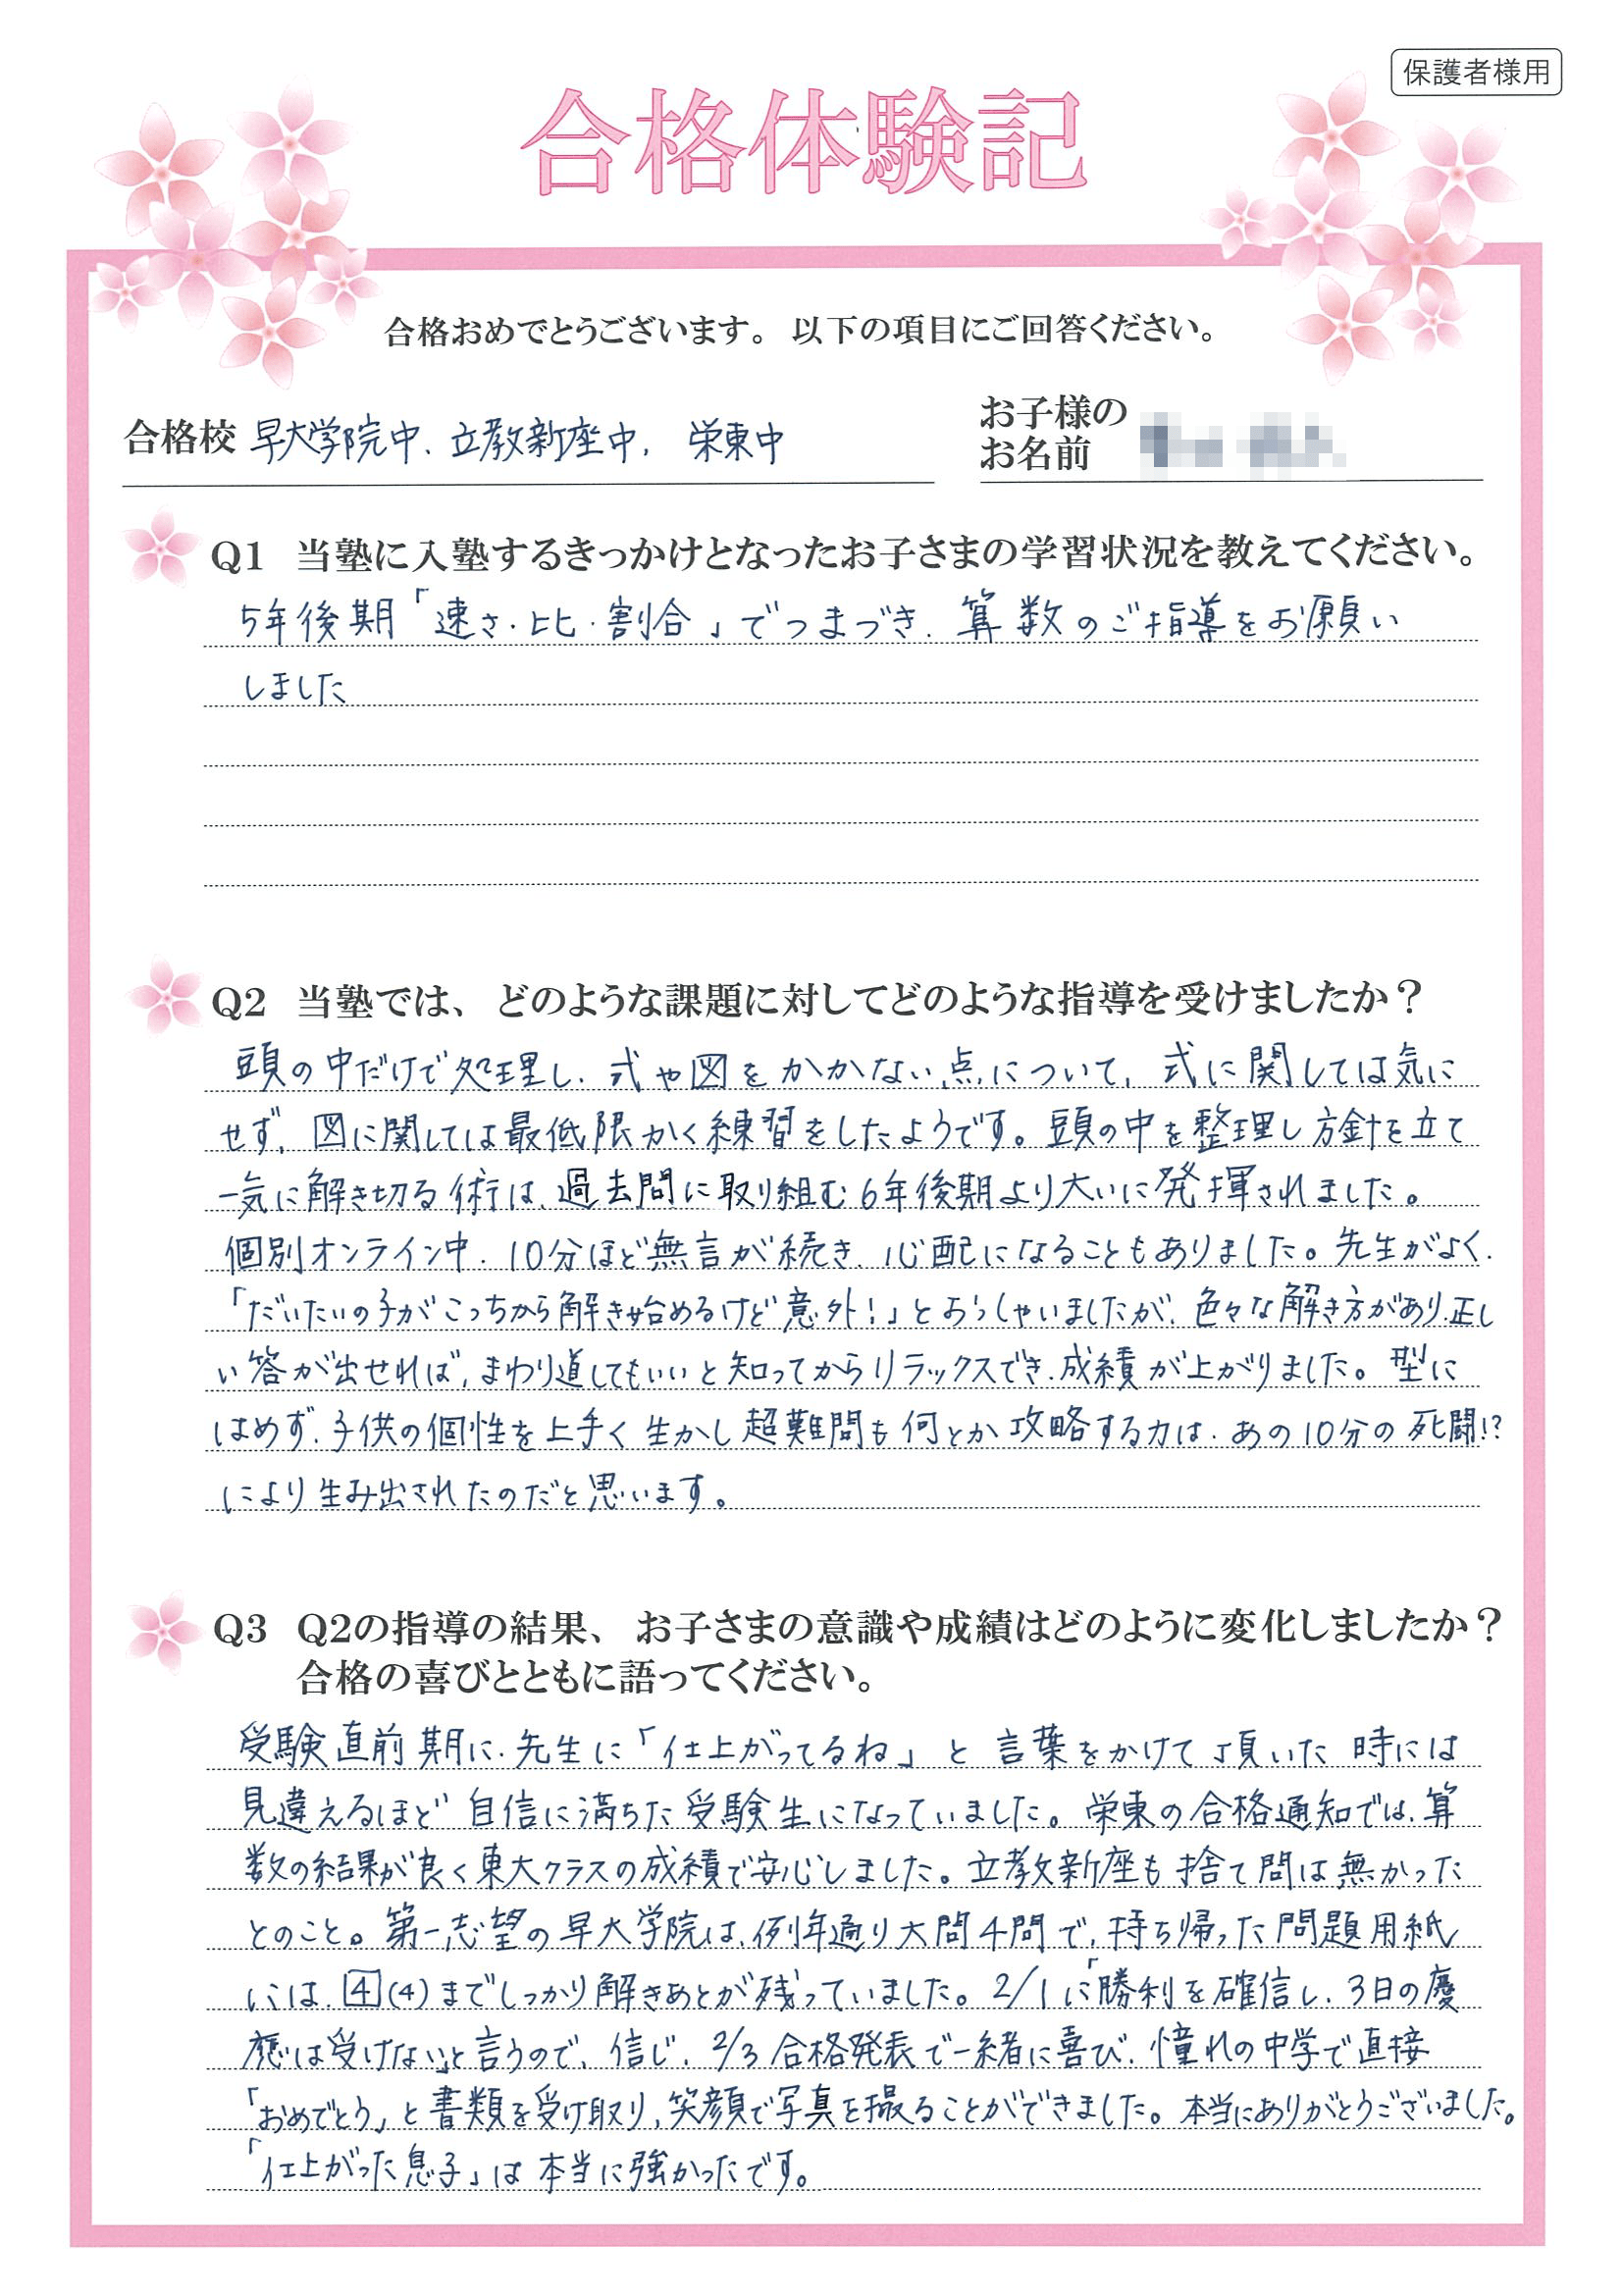 保護者様用
合格体験記
合格おめでとうございます。 以下の項目にご回答ください。
合格校 早大学院中、立教新座中、 栄東中
お子様の
お名前
Q1 当塾に入塾するきっかけとなったお子さまの学習状況を教えてください。
5年後期「速さ・比・割合」でつまづき、算数のご指導をお願い
しました
Q2 当塾では、 どのような課題に対してどのような指導を受けましたか？
頭の中だけで処理し、式や図をかかない点について、式に関しては気に
せず、図に関しては最低限かく練習をしたようです。頭の中を整理し方針を立て
一気に解き切る術は、過去問に取り組む6年後期より大いに発揮されました。
個別オンライン中、10分ほど無言が続き、心配になることもありました。先生がよく、
「だいたいの子がこっちから解き始めるけど意外！」とおっしゃいましたが、色々な解き方があり、正し
い答が出せれば、まわり道してもいいと知ってからリラックスでき、成績が上がりました。型に
はめず、子供の個性を上手く生かし超難問も何とか攻略する力は、あの10分の死闘!?
により生み出されたのだと思います。
Q3 Q2の指導の結果、 お子さまの意識や成績はどのように変化しましたか？
合格の喜びとともに語ってください。
受験直前期に、先生に「仕上がってるね」と言葉をかけて頂いた時には
見違えるほど自信に満ちた受験生になっていました。栄東の合格通知では、算
数の結果が良く東大クラスの成績で安心しました。立教新座も捨て問は無かった
とのこと。第一志望の早大学院は、例年通り大問4問で、持ち帰った問題用紙
には、4(4)までしっかり解きあとが残っていました。2/1に「勝利を確信し、3日の慶
應は受けない」と言うので、信じ、2/3合格発表で一緒に喜び、憧れの中学で直接
「おめでとう」と書類を受け取り、笑顔で写真を撮ることができました。本当にありがとうございました。
「仕上がった息子」は本当に強かったです。